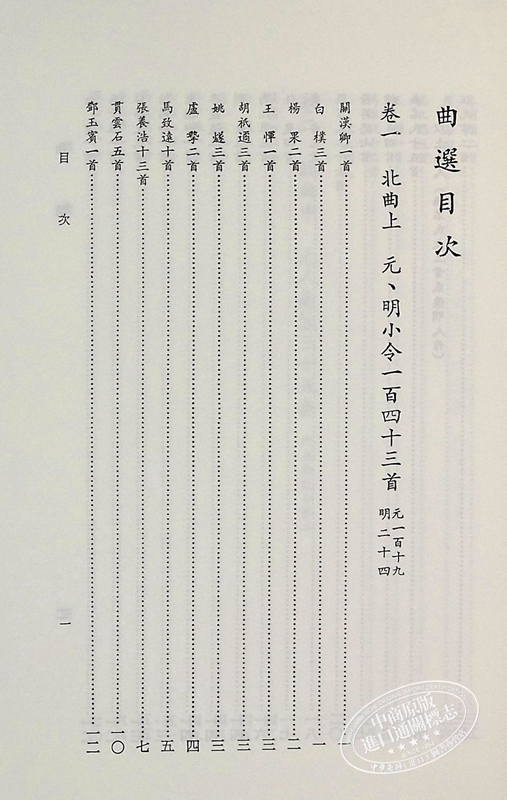 曲選目次
卷一　北曲上　元、明小令一百四十三首　元一百十九
明二十四
關漢卿一首……一
白樸三首……一
楊果二首……二
王惲一首……三
胡祗遹三首……三
姚燧三首……三
盧摯二首……四
馬致遠十首……五
張養浩十三首……七
貫雲石五首……一〇
鄧玉賓一首……一二
目次
一
中商原版
進口通關標志